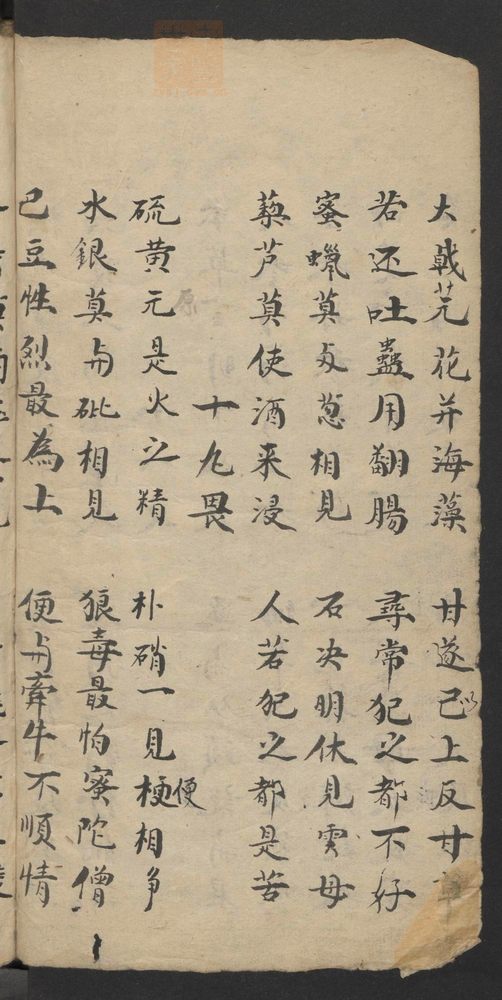 大戟芫花并海藻 甘遂己以上反甘草
若还吐蠱用翻腸 尋常犯之都不好
蜜蠟莫与葱相見 石决明休見雲母
藜芦莫使酒来浸 人若犯之都是苦
十九畏
硫黄元原是火之精 朴硝一見梗便相争
水銀莫与砒相見 狼毒最怕蜜陀僧
巴豆性烈最為上 便与牽牛不順情